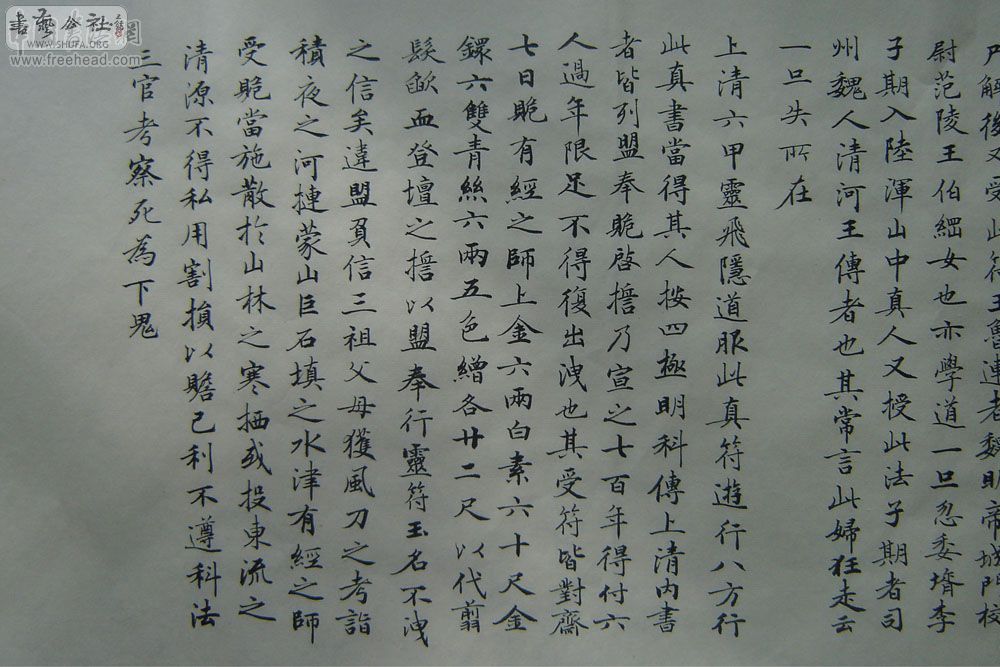 尸解後又受此符王魯連者魏明帝城門校
尉范陵王伯綱女也亦學道一旦忽委壻李
子期入陸渾山中真人又授此法子期者司
州魏人清河王傳者也其常言此婦狂走云
一旦失所在
上清六甲靈飛隱道服此真符遊行八方行
此真書當得其人按四極明科傳上清內書
者皆列盟奉貺啓擔乃宣之七百年得付六
人過年限足不得復出洩也其受符皆對齋
七日貺有經之師上金六兩白素六十尺金
鐶六雙青絲六兩五色繒各廿二尺以代翦
髮歃血登壇之擔以盟奉行靈符玉名不洩
之信矣違盟負信三祖父母獲風刀之考詣
積夜之河摙蒙山巨石填之水津有經之師
受貺當施散於山林之寒栖或投東流之
清源不得私用割損以贍己利不遵科法
三官考察死為下鬼
書藝公社
WWW.SHUFA.ORG
www.freehead.com